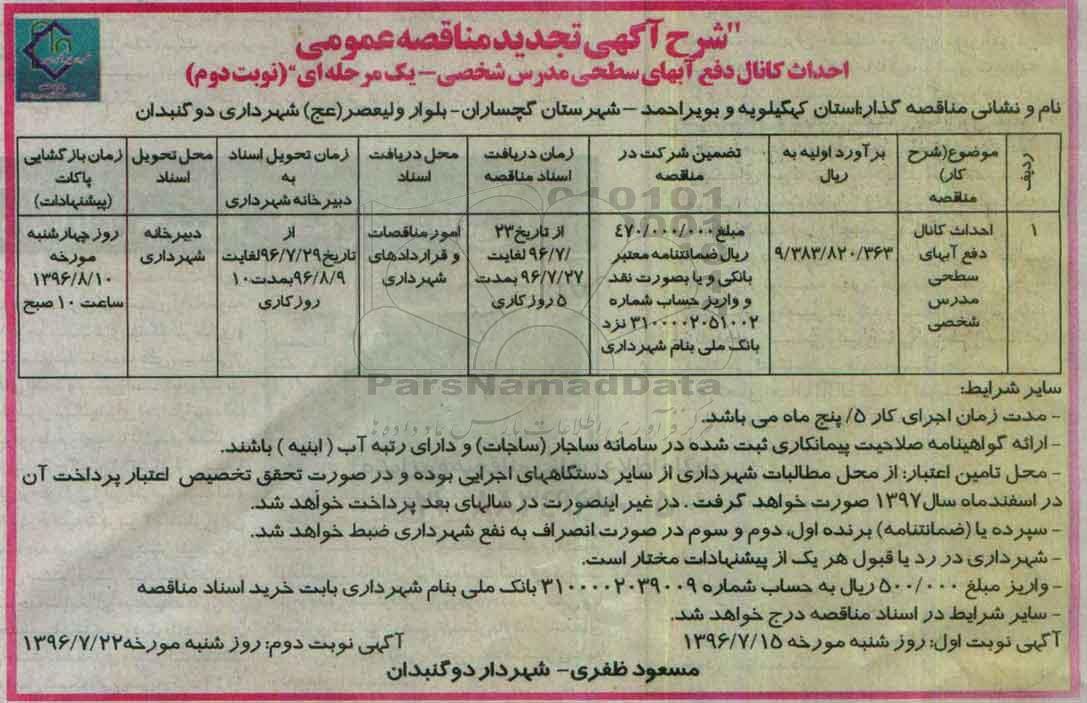 "شرح آگهی تجدید مناقصه عمومی
احداث کانال دفع آبهای سطحی مدرس شخصی – یک مرحله ای" (نوبت دوم)
نام و نشانی مناقصه گذار:استان کهگیلویه و بویراحمد – شهرستان گچساران- بلوار ولیعصر(عج) شهرداری دوگنبدان
ردیف
موضوع(شرح
کار)
مناقصه
برآورد اولیه به
ریال
تضمین شرکت در
مناقصه
زمان دریافت
اسناد مناقصه
محل دریافت
اسناد
زمان تحویل اسناد
به
دبیرخانه شهرداری
محل تحویل
اسناد
زمان بازگشایی
پاکات
(پیشنهادات)
۱
احداث کانال
دفع آبهای
سطحی
مدرس
شخصی
۹/۳۸۳/۸۲۰/۳۶۳
مبلغ ۴۷۰/۰۰۰/۰۰۰
ریال ضمانتنامه معتبر
بانکی و یا بصورت نقد
و واریز حساب شماره
۳۱۰۰۰۰۲۰۵۱۰۰۲ نزد
بانک ملی بنام شهرداری
از تاریخ۲۳
/۹۶/۷ لغایت
۹۶/۷/۲۷ بمدت
۵ روز کاری
امور مناقصات
و قراردادهای
شهرداری
از
تاریخ۹۶/۷/۲۹لغایت
۹۶/۸/۹بمدت۱۰
روز کاری
دبیرخانه
شهرداری
روز چهارشنبه
مورخه
۱۳۹۶/۸/۱۰
ساعت ۱۰ صبح
ParsNamadData
سایر شرایط:
- مدت زمان اجرای کار ۵/ پنج ماه می باشد.
- ارائه گواهینامه صلاحیت پیمانکاری ثبت شده در سامانه ساجار (ساجات) و دارای رتبه آب ( ابنیه ) باشند.
- محل تامین اعتبار: از محل مطالبات شهرداری از سایر دستگاههای اجرایی بوده و در صورت تحقق تخصیص اعتبار پرداخت آن
در اسفندماه سال۱۳۹۷ صورت خواهد گرفت . در غیر اینصورت در سالهای بعد پرداخت خواهد شد.
- سپرده یا (ضمانتنامه) برنده اول، دوم و سوم در صورت انصراف به نفع شهرداری ضبط خواهد شد.
- شهرداری در رد یا قبول هر یک از پیشنهادات مختار است.
- واریز مبلغ ۵۰۰/۰۰۰ ریال به حساب شماره ۳۱۰۰۰۰۲۰۳۹۰۰۹ بانک ملی بنام شهرداری بابت خرید اسناد مناقصه
- سایر شرایط در اسناد مناقصه درج خواهد شد.
آگهی نوبت اول: روز شنبه مورخه ۱۳۹۶/۷/۱۵ آگهی نوبت دوم: روز شنبه مورخه۱۳۹۶/۷/۲۲
مسعود ظفری- شهردار دوگنبدان